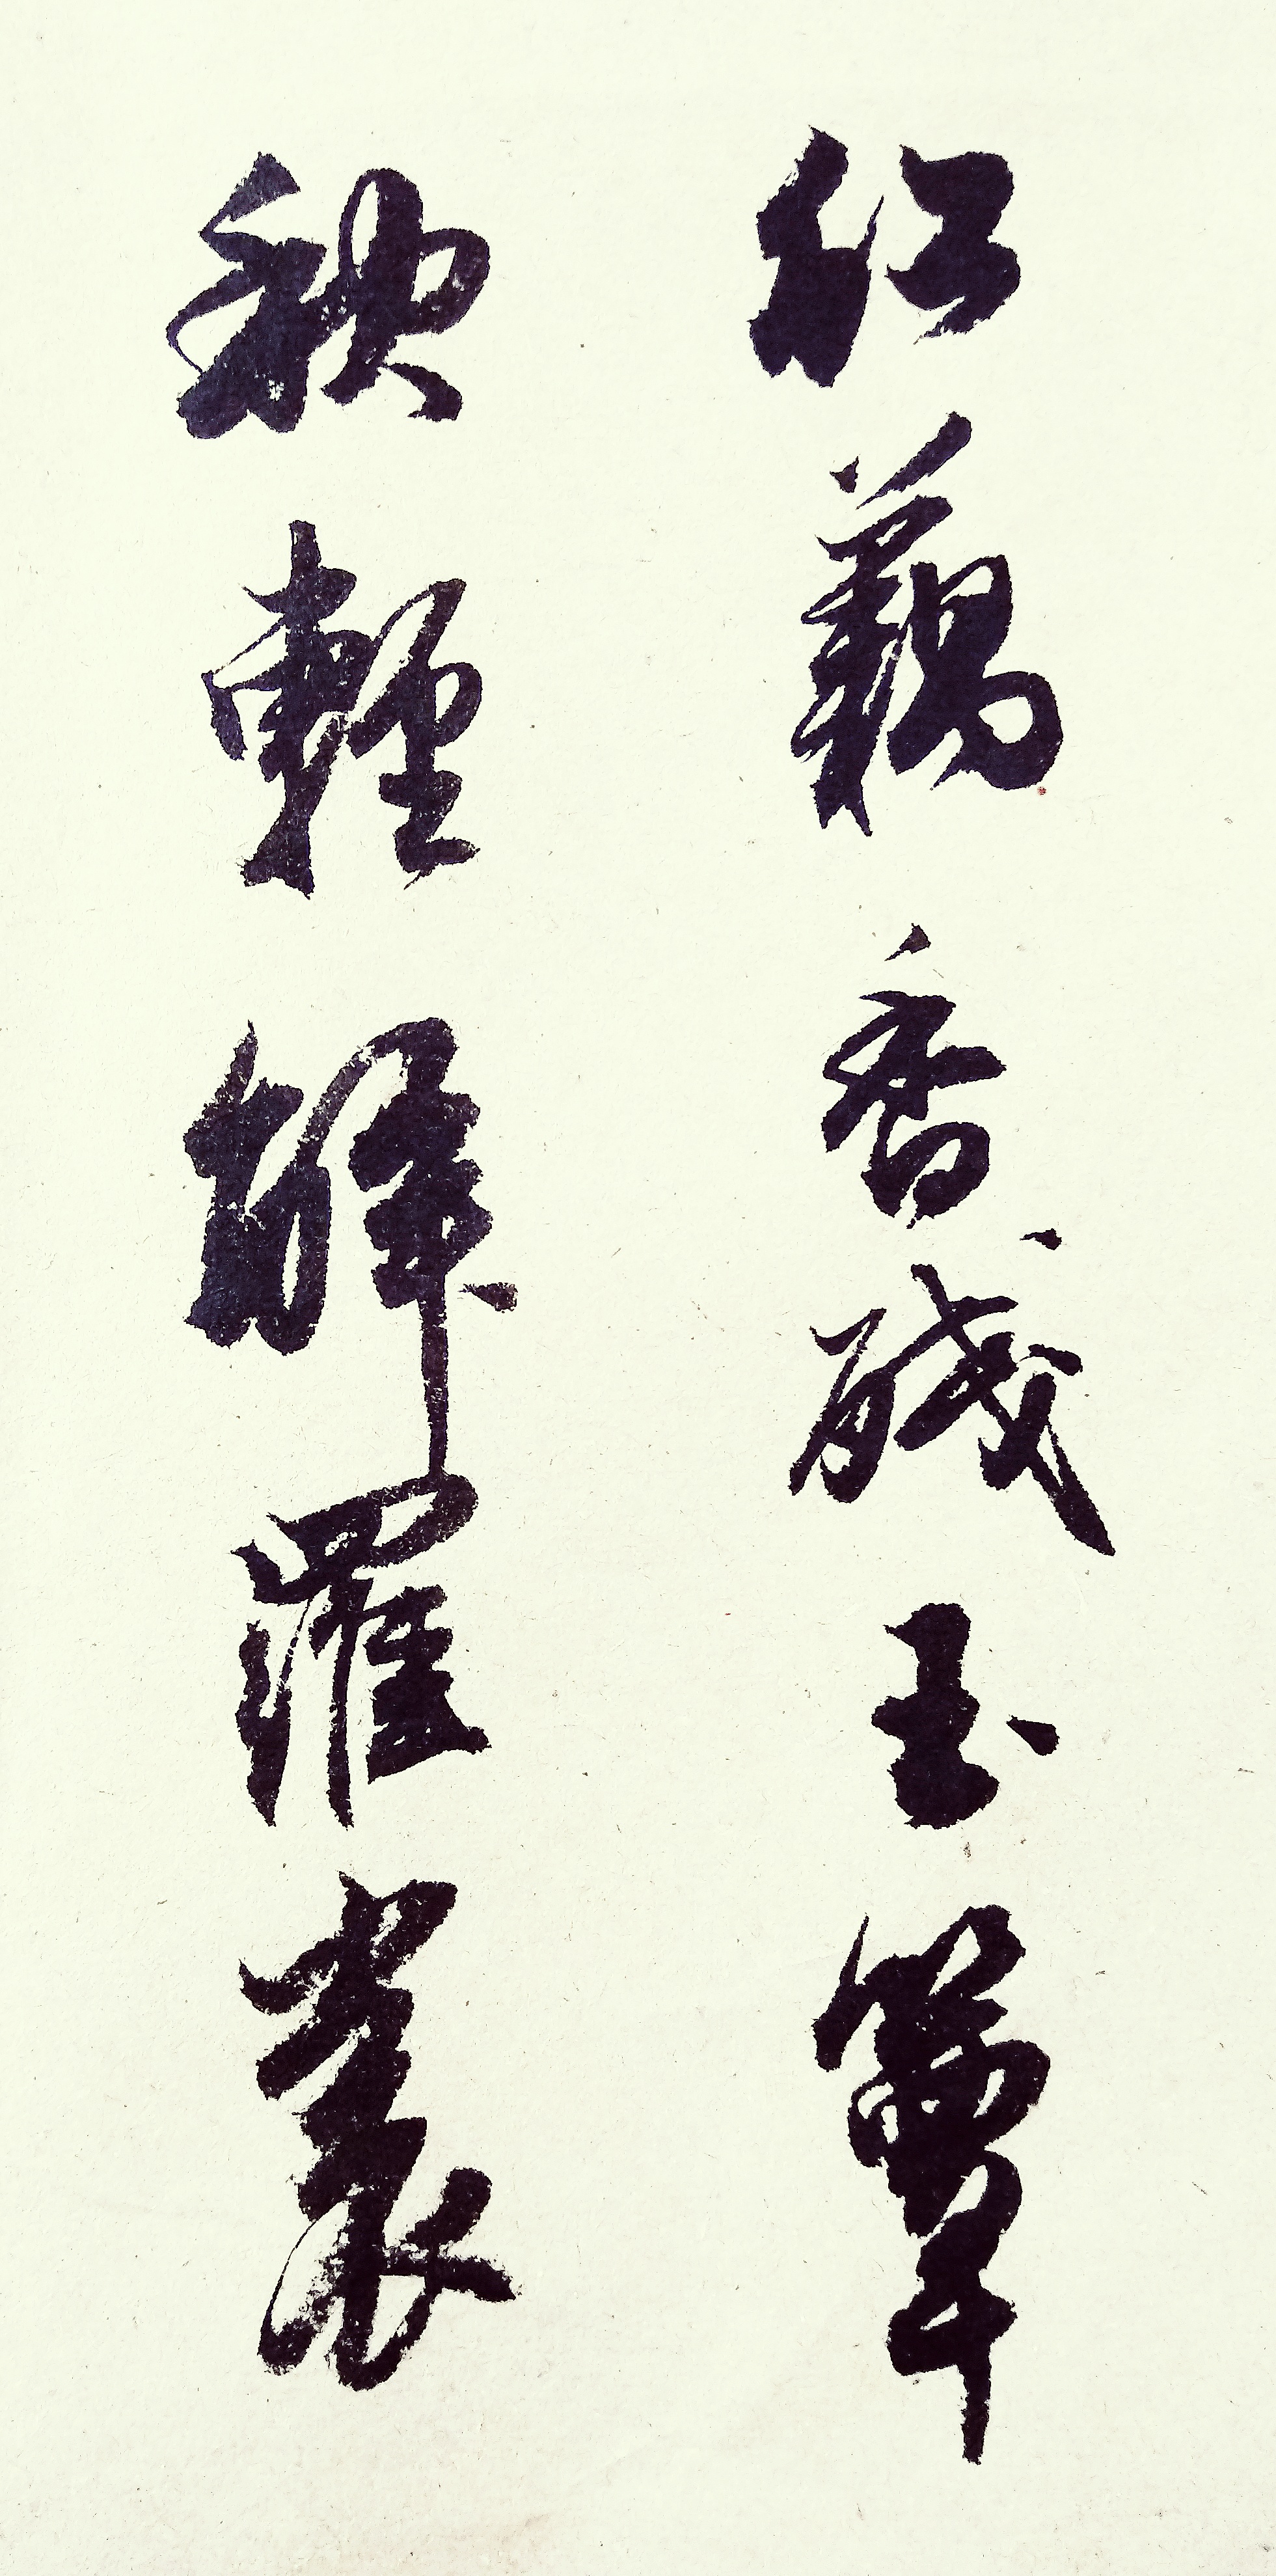 紅藕香殘玉簟
秋輕解羅裳